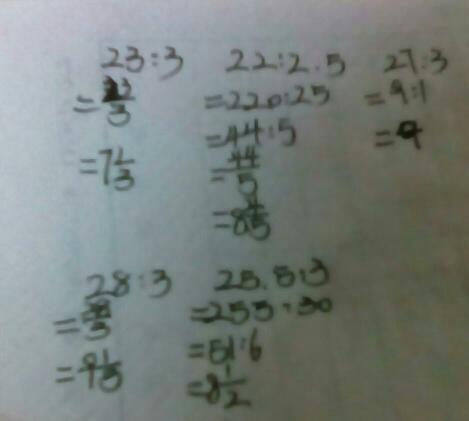 23:3 22:2.5 27:3
=22/3 =220:25 =9:1
=7 1/3 =44:5 =9
=44/5
=8 4/5
28:3 25.5:3
=28/3 =255:30
=9 1/3 =51:6
=8 1/2